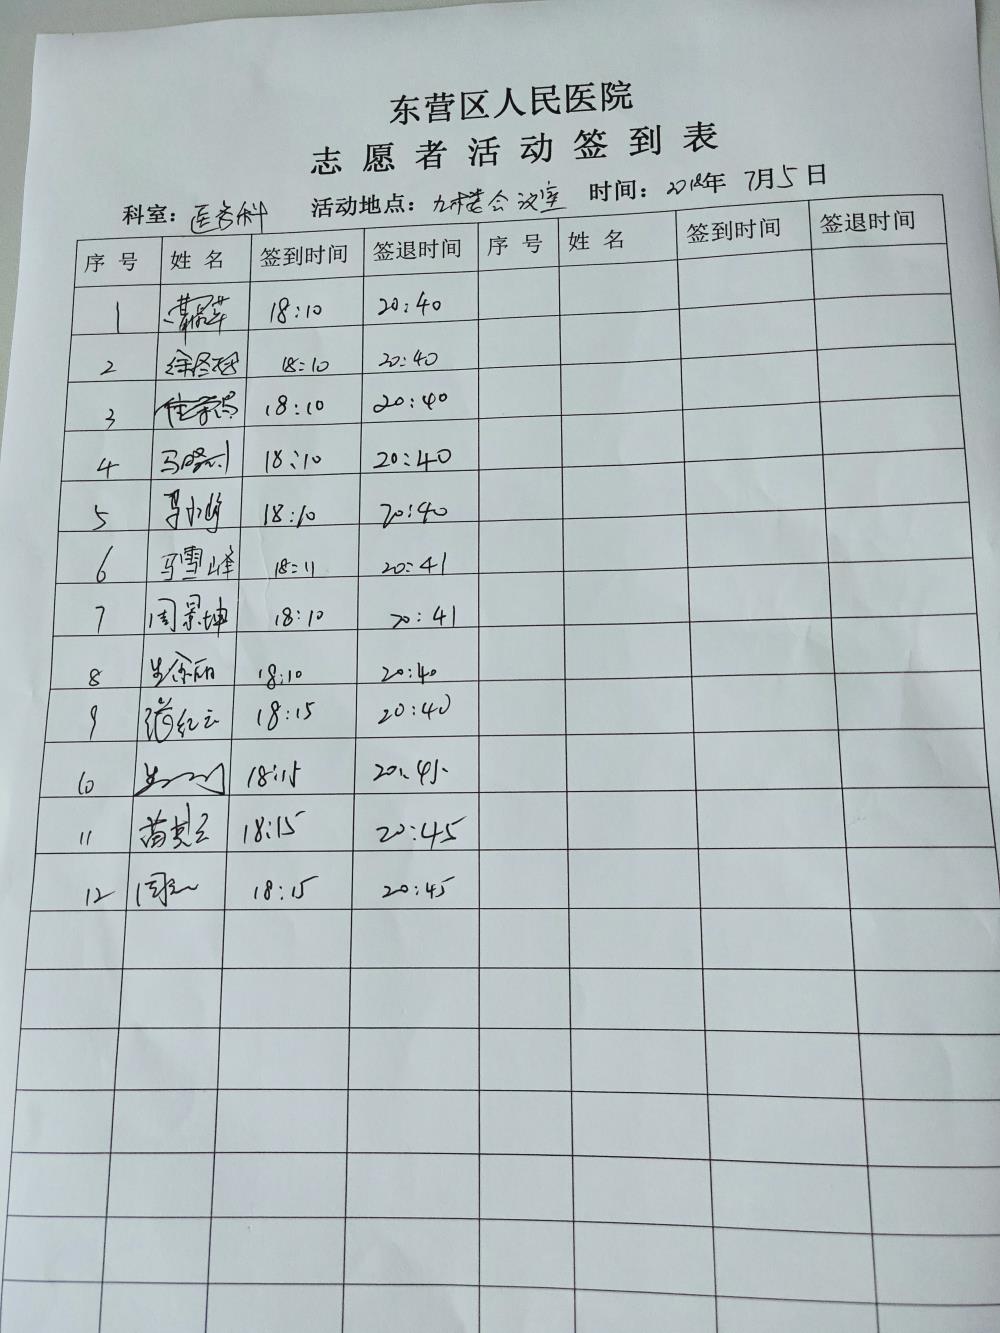 东营区人民医院
志愿者活动签到表
科室：医务科 活动地点：九楼会议室 时间：2018年7月5日
序号 姓名 签到时间 签退时间 序号 姓名 签到时间 签退时间
1 18:10 20:40
2 18:10 20:40
3 18:10 20:40
4 马晓 18:10 20:40
5 马小峰 18:10 20:40
6 马雪峰 18:11 20:41
7 周景坤 18:10 20:41
8 18:10 20:40
9 红云 18:15 20:40
10 18:15 20:45
11 苗 18:15 20:45
12 周 18:15 20:45